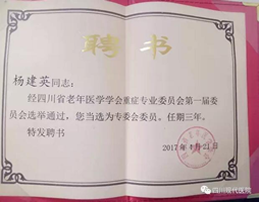 聘书
杨建英同志：
经四川省老年医学学会重症专业委员会第一届委
员会选举通过，您当选为专委会委员。任期三年。
特发聘书
2017年4月21日
四川现代医院